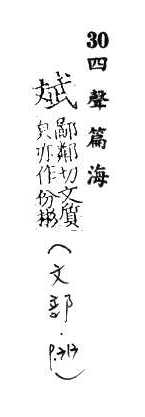 30 四聲篇海
斌
鄙鄰切文質
皃亦作份彬
(文部.